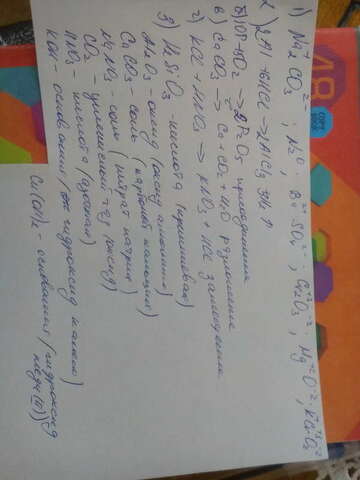 1) Na₂⁺CO₃²⁻; N₂⁰; Ba²⁺SO₄²⁻; Cr₂⁺³O₃⁻²; Mg⁺²O⁻²; K
2) 2Al + 6HCl → 2AlCl₃ 3H₂↑
б) O₂ → 2P₂O₅ присоединения
в) CaCO₃ → Ca + CO₂ + H₂O разложения
г) KCl + HNO₃ → KNO₃ + HCl замещения
3) H₂SiO₃ - кислота (кремниевая)
Al₂O₃ - оксид (оксид алюминия)
CaCO₃ - соль (карбонат кальция)
NaNO₃ - соль (нитрат натрия)
CO₂ - углекислый газ (оксид)
HNO₃ - кислота (азотная)
KOH - основания (гидроксид калия)
Cu(OH)₂ - основания (гидроксид меди (II))